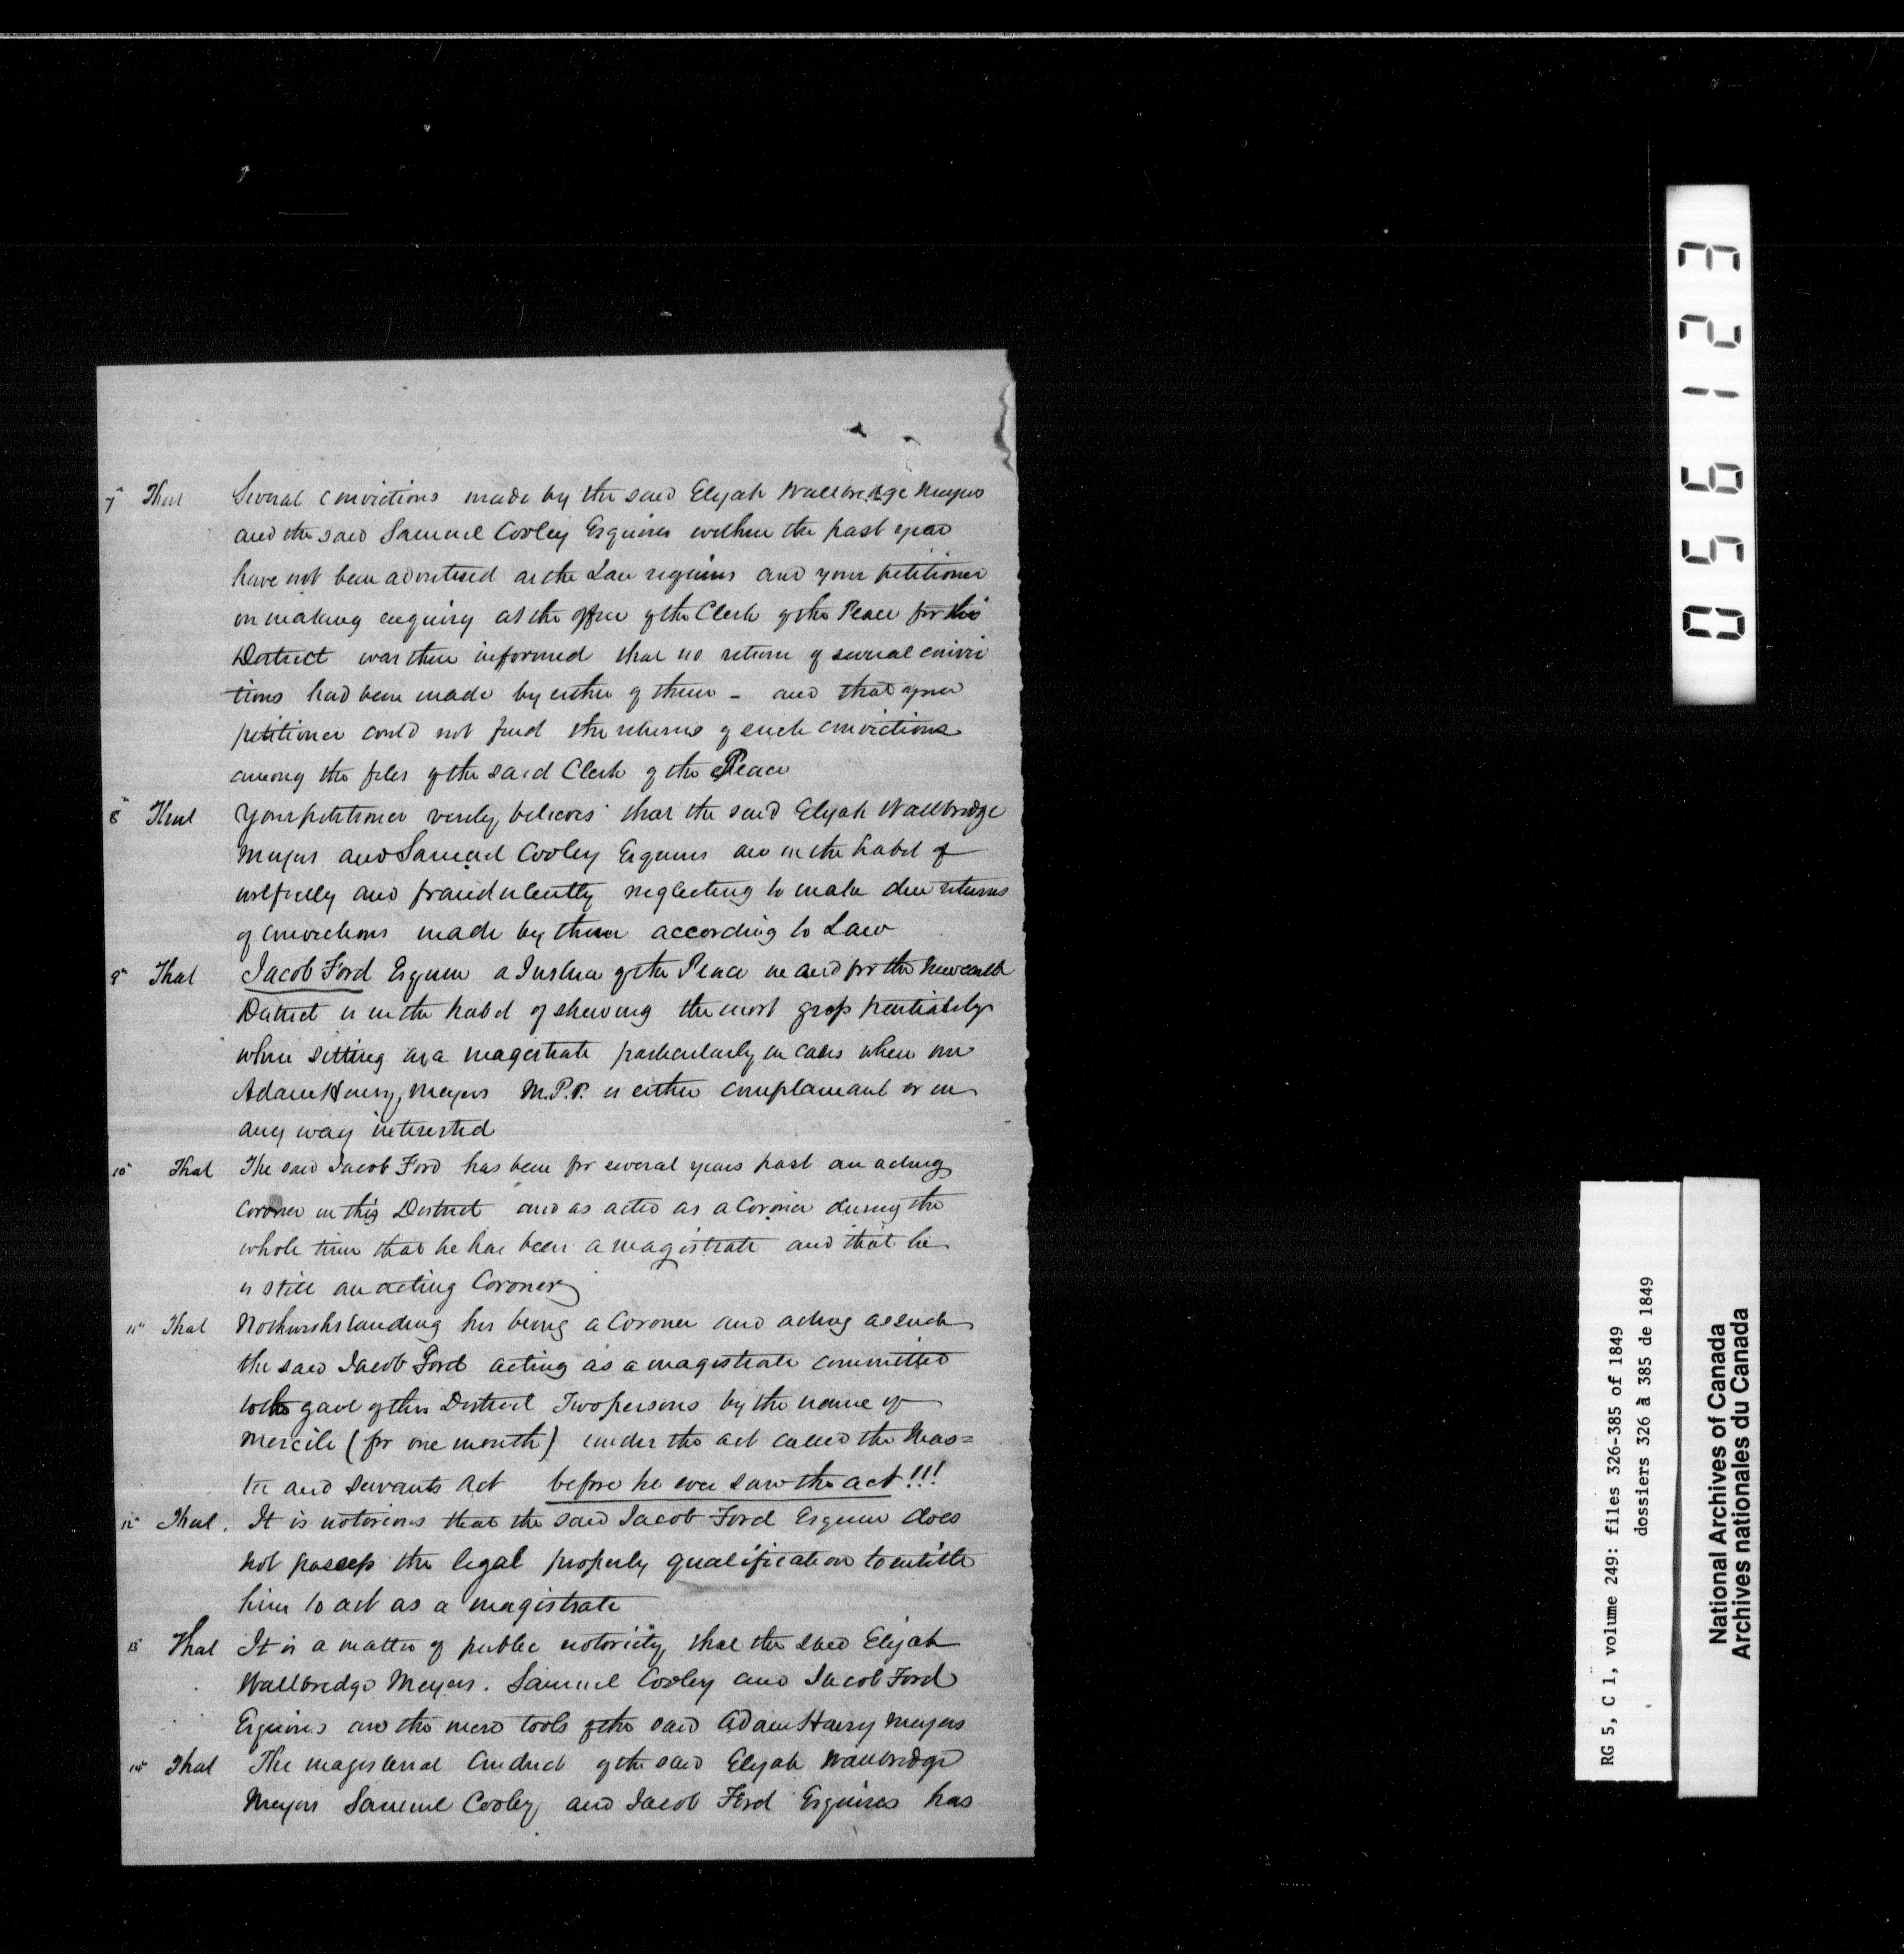 7" That Several convictions made by the said Elijah Wallbridge Meyers
and the said Samuel Cooley Esquires within the past year
have not been advertised as the Law requires and your petitioner
on making enquiry at the office of the Clerk of the Peace for this
District was there informed that no return of several convic
tions had been made by either of them - and that your
petitioner could not find the returns of such convictions
among the files of the said Clerk of the Peace
8" That Your petitioner verily believes that the said Elijah Wallbridge
Meyers and Samuel Cooley Esquires are in the habit of
wilfully and fraudulently neglecting to make due returns
of convictions made by them according to Law
9" That Jacob Ford Esquire a Justice of the Peace in and for the Newcastle
District is in the habit of shewing the most gross partiality
when sitting as a magistrate particularly in cases when one
Adam Henry Meyers M.P.P. is either complainant or in
any way interested
10" That The said Jacob Ford has been for several years past an acting
Coroner in this District and as acted as a Coroner during the
whole time that he has been a magistrate and that he
is still an acting Coroner
11" That Nothwithstanding his being a Coroner and acting as such
the said Jacob Ford acting as a magistrate committed
to the gaol of this District Two persons by the name of
Mercile (for one month) under the act called the Mas=
ter and Servants Act before he ever saw the act!!!
12" That. It is notorious that the said Jacob Ford Esquire does
not possess the legal property qualification to entitle
him to act as a magistrate
13" That It is a matter of public notoriety, that the said Elijah
Wallbridge Meyers. Samuel Cooley and Jacob Ford
Esquires are the mere tools of the said Adam Henry Meyers
14" That The magisterial Conduct of the said Elijah Wallbridge
Meyers Samuel Cooley, and Jacob Ford Esquires has
056123
RG 5, C 1, volume 249: files 326-385 of 1849
dossiers 326 à 385 de 1849
National Archives of Canada
Archives nationales du Canada